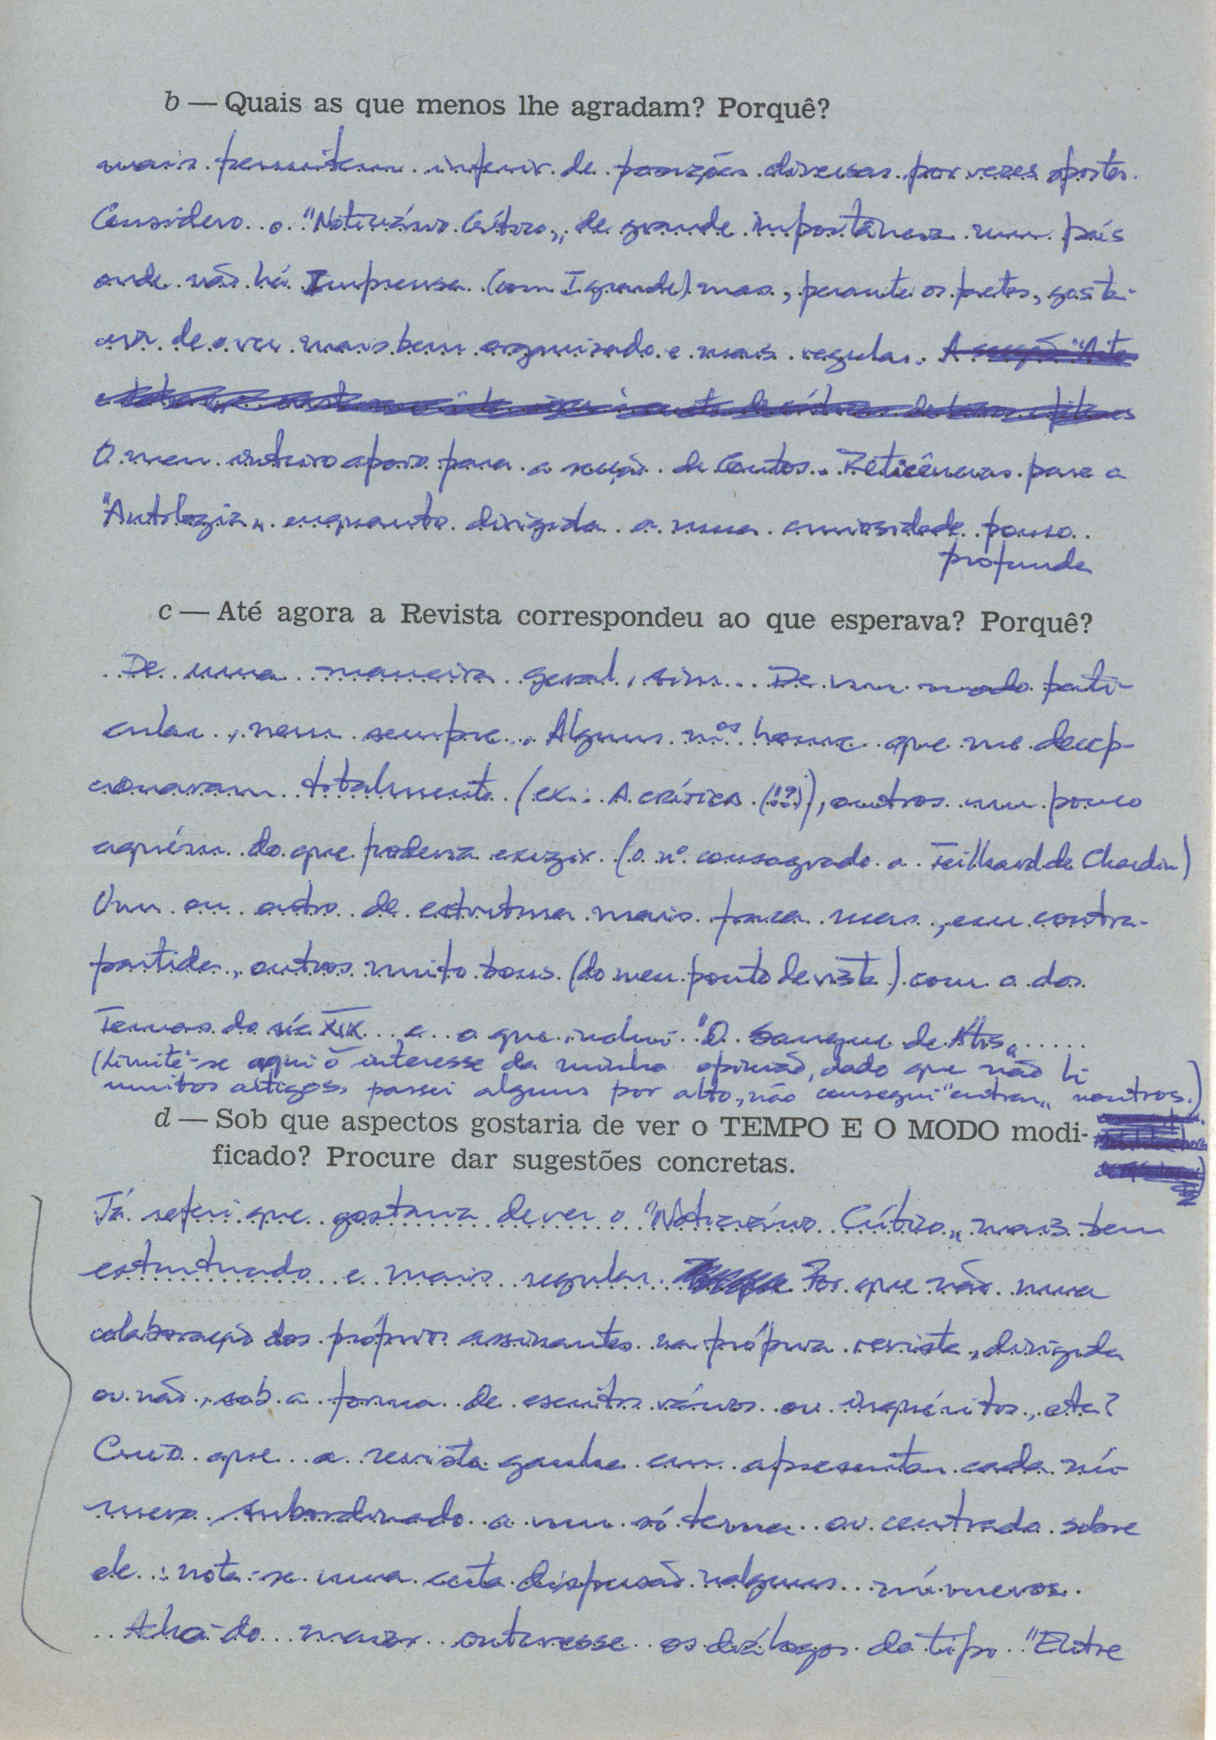 b — Quais as que menos lhe agradam? Porquê?
mais permitem inferir de posições diversas por vezes opostas.
Considero o "Noticiário Crítico" de grande importância num país
onde não há Imprensa (com I grande) mas, perante os factos, gosta-
ria de o ver mais bem organizado e mais regular. A secção "Arte
O meu inteiro apoio para a secção de Contos. Reticências para a
"Antologia" enquanto dirigida a uma curiosidade pouco
profunda
c — Até agora a Revista correspondeu ao que esperava? Porquê?
De uma maneira geral, sim. De um modo parti-
cular, nem sempre. Alguns nos houve que me decep-
cionaram totalmente (ex.: A CRÍTICA (!?)), outros um pouco
aquém do que poderia exigir (o nº consagrado a Teilhard de Chardin)
Um ou outro de estrutura mais fraca mas, em contra-
partida, outros muito bons (do meu ponto de vista) com o dos
Temas do séc XIX e o que inclui "O Sangue de Atis"
(Limite-se aqui o interesse da minha opinião, dado que não li
muitos artigos, passei alguns por alto, não consegui "entrar" noutros.)
d — Sob que aspectos gostaria de ver o TEMPO E O MODO modi-
ficado? Procure dar sugestões concretas.
Já referi que gostaria de ver o "Noticiário Crítico" mais bem
estruturado e mais regular. Por que não uma
colaboração dos próprios assinantes na própria revista, dirigida
ou não, sob a forma de escritos vários ou inquéritos, etc?
Creio que a revista ganha em apresentar cada nú-
mero subordinado a um só tema ou centrado sobre
ele: nota-se uma certa dispersão nalguns números.
Acho do maior interesse os diálogos do tipo "Entre